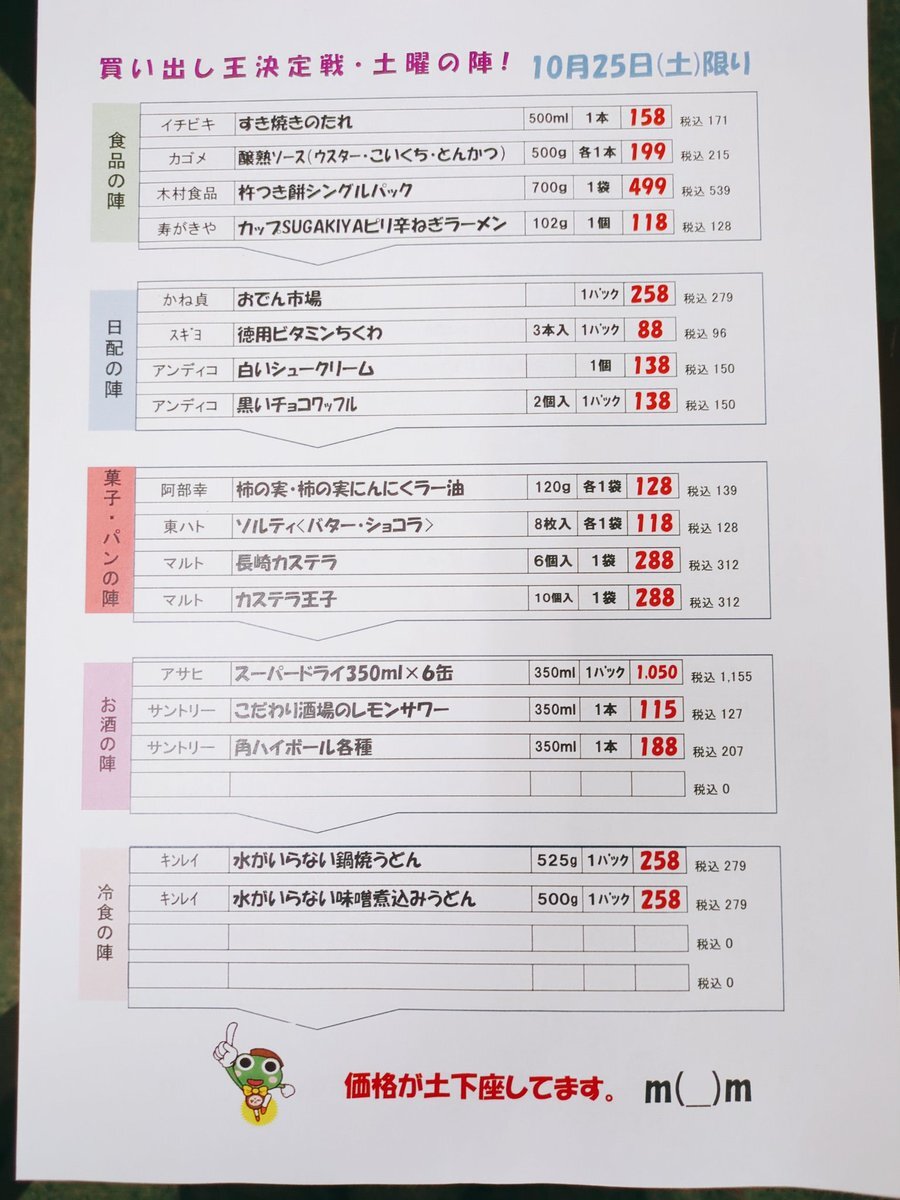 買い出し王決定戦・土曜の陣! 10月25日(土)限り
食品の陣
イチビキ すき焼きのたれ 500ml 1本 158 税込 171
カゴメ 醸熟ソース(ウスター・こいくち・とんかつ) 500g 各1本 199 税込 215
木村食品 杵つき餅シングルパック 700g 1袋 499 税込 539
寿がきや カップSUGAKIYAピリ辛ねぎラーメン 102g 1個 118 税込 128
日配の陣
かね貞 おでん市場 1パック 258 税込 279
スギヨ 徳用ビタミンちくわ 3本入 1パック 88 税込 96
アンディコ 白いシュークリーム 1個 138 税込 150
アンディコ 黒いチョコワッフル 2個入 1パック 138 税込 150
菓子・パンの陣
阿部幸 柿の実・柿の実にんにくラー油 120g 各1袋 128 税込 139
東ハト ソルティ<バター・ショコラ> 8枚入 各1袋 118 税込 128
マルト 長崎カステラ 6個入 1袋 288 税込 312
マルト カステラ王子 10個入 1袋 288 税込 312
お酒の陣
アサヒ スーパードライ350ml×6缶 350ml 1パック 1.050 税込 1,155
サントリー こだわり酒場のレモンサワー 350ml 1本 115 税込 127
サントリー 角ハイボール各種 350ml 1本 188 税込 207
税込 0
冷食の陣
キンレイ 水がいらない鍋焼うどん 525g 1パック 258 税込 279
キンレイ 水がいらない味噌煮込みうどん 500g 1パック 258 税込 279
税込 0
税込 0
価格が土下座してます。 m(__)m